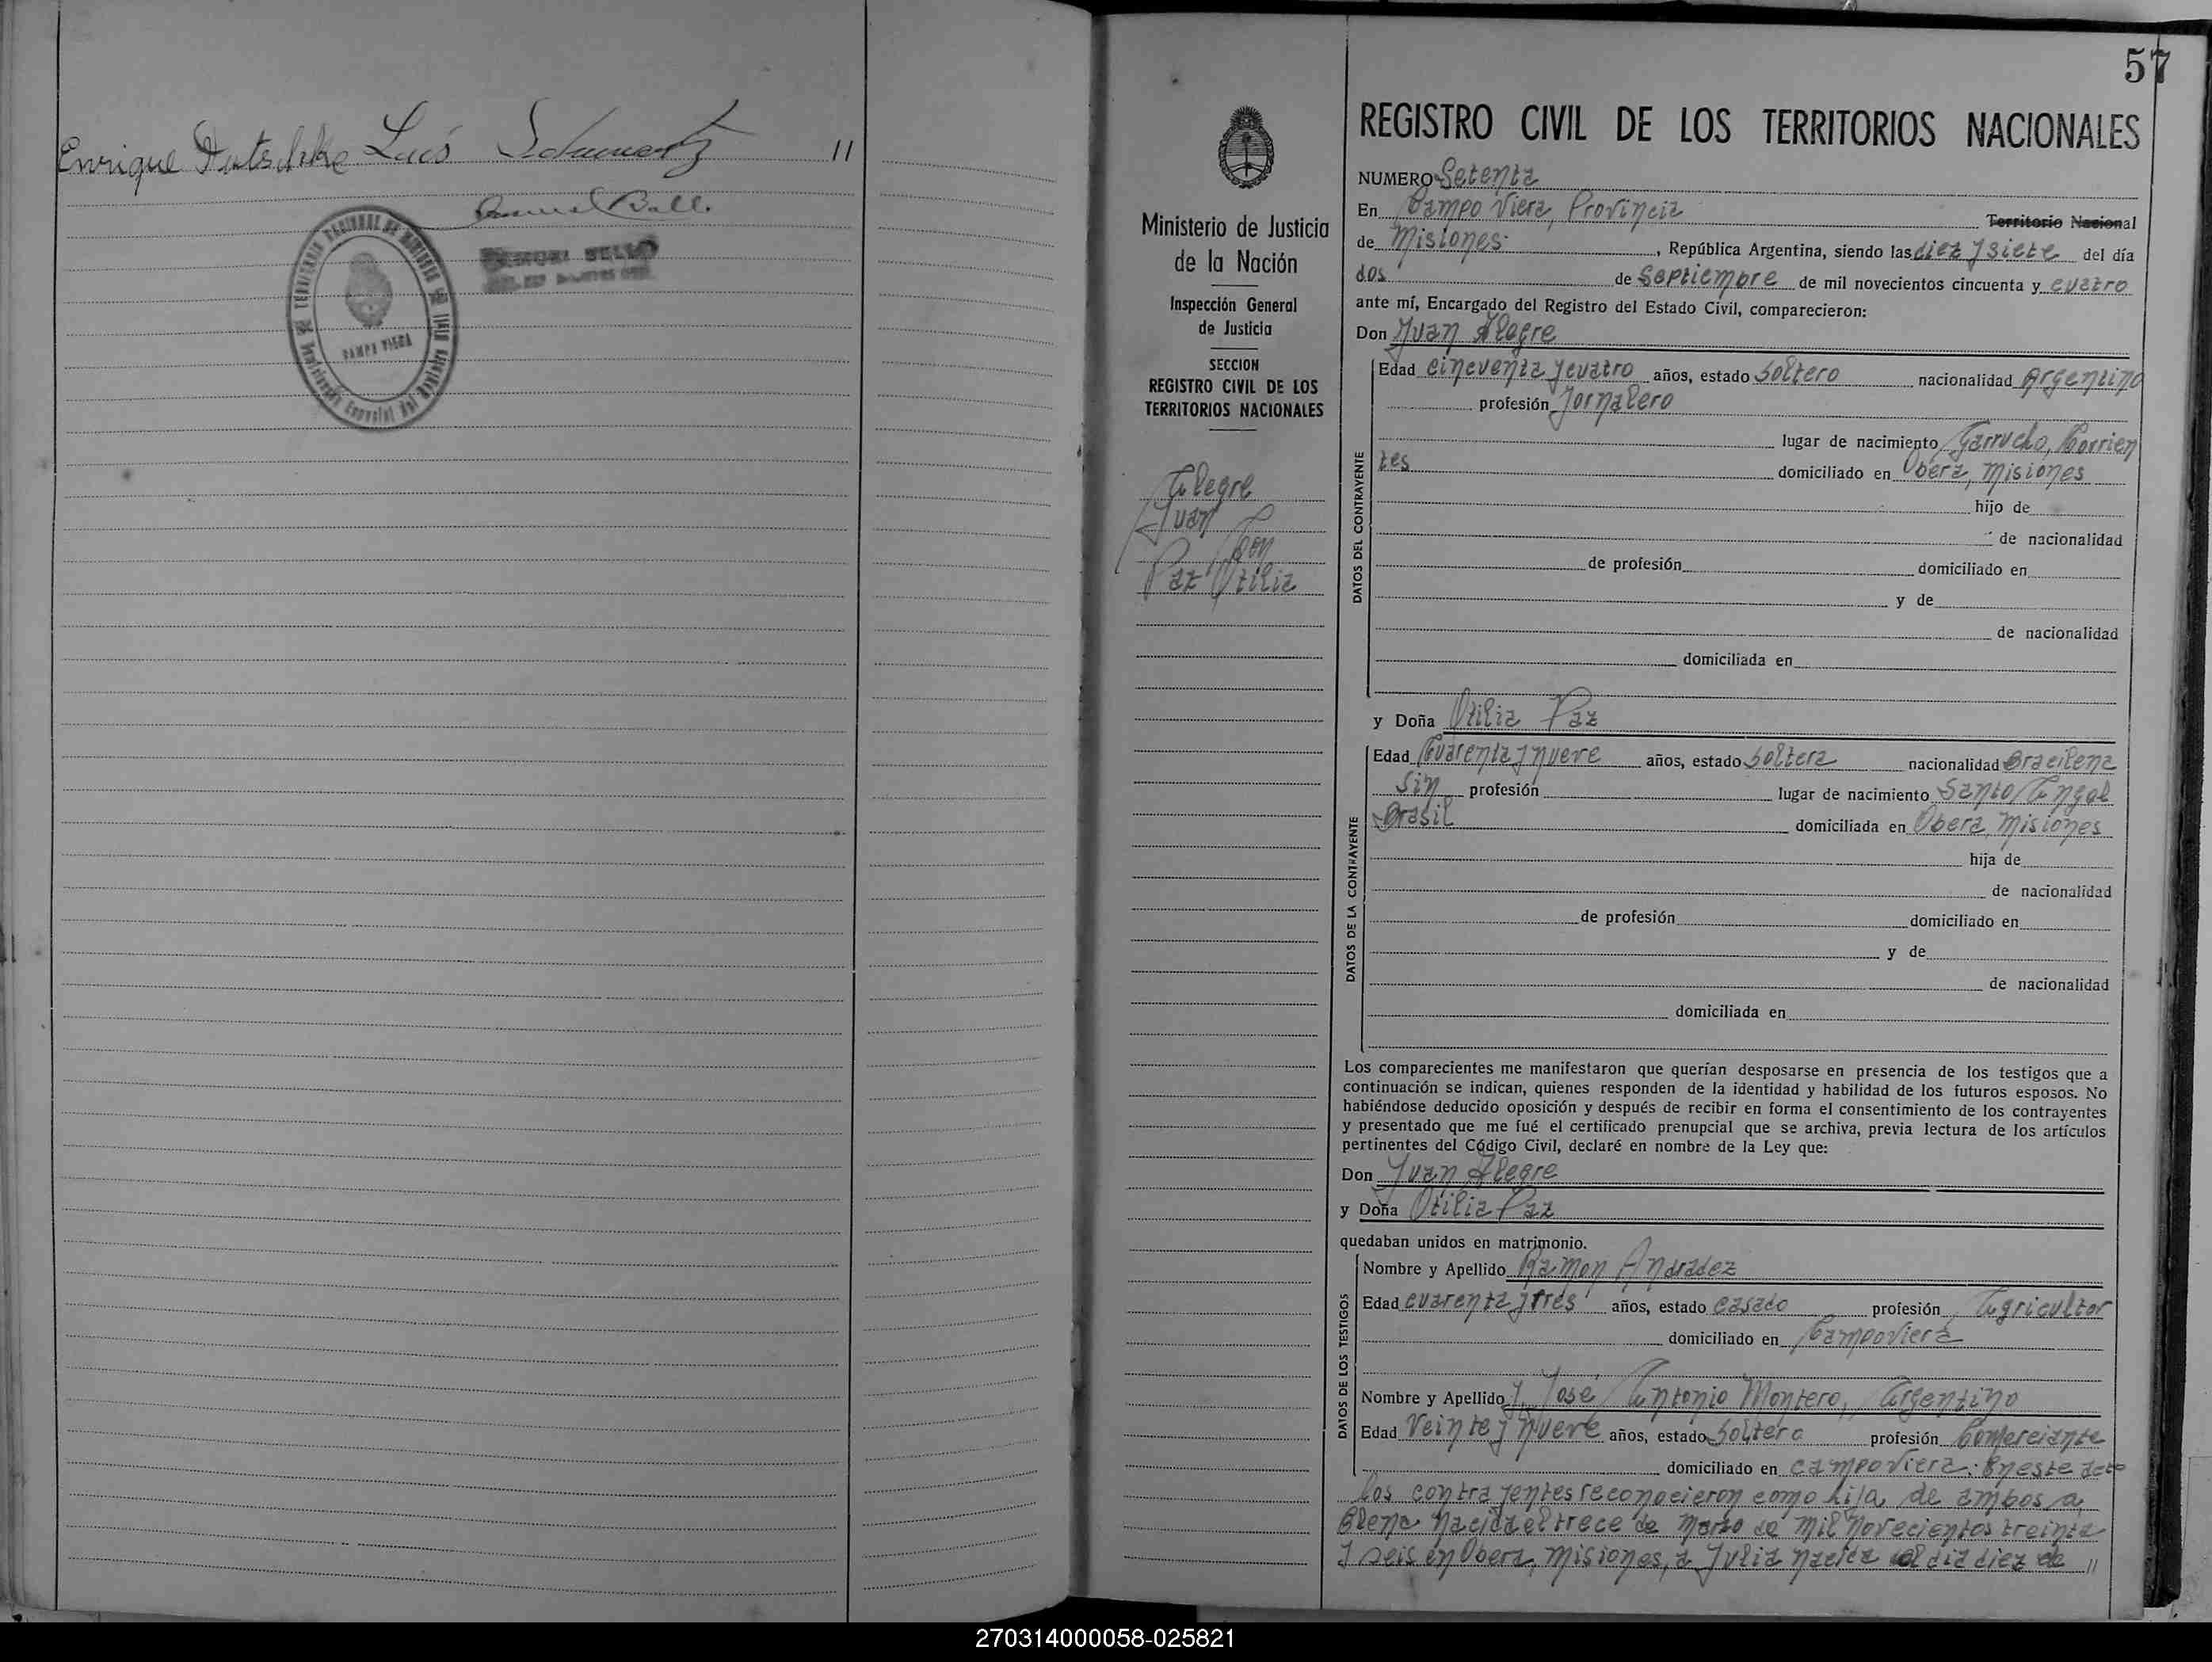 Enrique Dutschke Luis Schwartz //
CAMPO VIERA
57
REGISTRO CIVIL DE LOS TERRITORIOS NACIONALES
Ministerio de Justicia
de la Nación
Inspección General
de Justicia
SECCION
REGISTRO CIVIL DE LOS
TERRITORIOS NACIONALES
Alegre
Juan
con
Paz Otilia
NUMERO Setenta
En Campo Viera, Provincia Territorio Nacional
de Misiones, República Argentina, siendo las diez y siete del día
dos de Septiembre de mil novecientos cincuenta y cuatro
ante mí, Encargado del Registro del Estado Civil, comparecieron:
Don Juan Alegre
DATOS DEL CONTRAYENTE
Edad cincuenta y cuatro años, estado Soltero nacionalidad Argentino
profesión Jornalero
lugar de nacimiento Garrucho, Corrien
tes domiciliado en Obera, Misiones
hijo de
de nacionalidad
de profesión domiciliado en
y de
de nacionalidad
domiciliada en
y Doña Otilia Paz
DATOS DE LA CONTRAYENTE
Edad Cuarenta y nueve años, estado Soltera nacionalidad Brasilena
Sin profesión lugar de nacimiento Santo Angel
Brasil domiciliada en Obera, Misiones
hija de
de nacionalidad
de profesión domiciliado en
y de
de nacionalidad
domiciliada en
Los comparecientes me manifestaron que querían desposarse en presencia de los testigos que a
continuación se indican, quienes responden de la identidad y habilidad de los futuros esposos. No
habiéndose deducido oposición y después de recibir en forma el consentimiento de los contrayentes
y presentado que me fué el certificado prenupcial que se archiva, previa lectura de los artículos
pertinentes del Código Civil, declaré en nombre de la Ley que:
Don Juan Alegre
y Doña Otilia Paz
quedaban unidos en matrimonio.
DATOS DE LOS TESTIGOS
Nombre y Apellido Ramon Andradez
Edad cuarenta y tres años, estado casado profesión Agricultor
domiciliado en Campo Viera
Nombre y Apellido y José Antonio Montero, Argentino
Edad Veinte y nueve años, estado Soltero profesión Comerciante
domiciliado en campo Viera. En este acto
los contrayentes reconocieron como hija de ambos a
Elena nacida el trece de Marzo de mil novecientos treinta
y seis en Obera, Misiones, a Julia nacida el dia diez de //
270314000058-025821